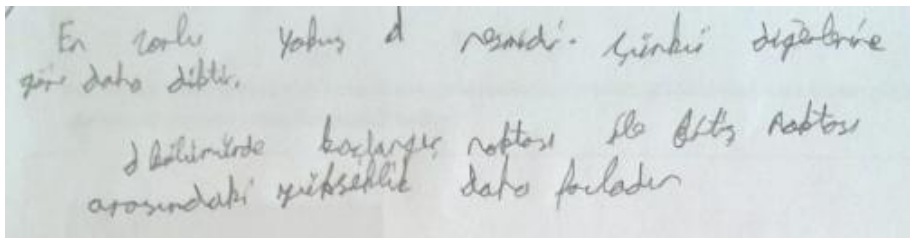 En zorlu yokuş d resmidir. Çünkü diğerlerine
göre daha diktir.
d bölümünde başlangıç noktası ile bitiş noktası
arasındaki yükseklik daha fazladır